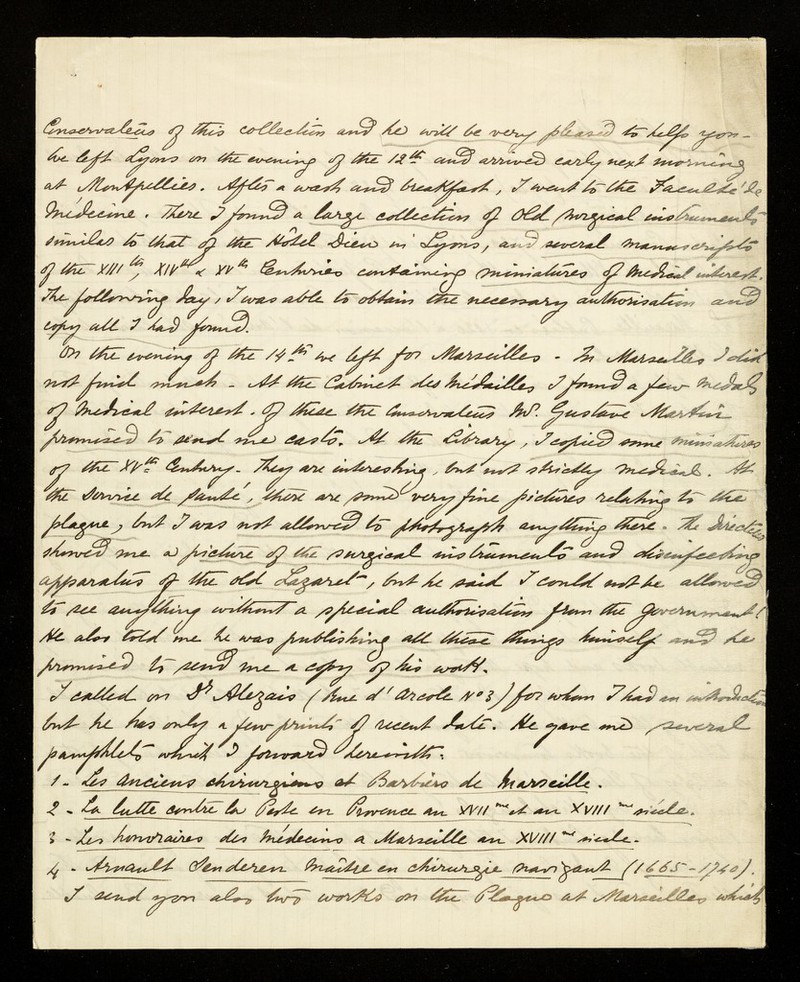 Conservateurs of this collection and he will be very pleased to help you -
We left Lyons on the evening of the 12th and arrived early next morning
at Montpellier. After a wash and breakfast, I went to the Faculté de
Médecine. There I found a large collection of old surgical instruments
similar to that of the Hôtel Dieu in Lyons, and several manuscripts
of the XIIIth, XIVth & XVth Centuries containing miniatures of medical interest.
The following day, I was able to obtain the necessary authorisation and
copy all I had found.
On the evening of the 14th we left for Marseilles - In Marseilles I did
not find much - At the Cabinet des Médailles I found a few medals
of medical interest. Of these the Conservateur Mr. Gustave Martin
promised to send me casts. At the Library, I copied some miniatures
of the XVth Century. They are interesting, but not strictly medical. At
the Service de Santé, there are some very fine pictures relating to the
plague, but I was not allowed to photograph anything there - The Director
showed me a picture of the surgical instruments and disinfecting
apparatus of the old Lazaret, but he said I could not be allowed
to see anything without a special authorisation from the government!
He also told me he was publishing all these things himself and he
promised to send me a copy of his work.
I called on Dr Alezais (Rue d'Arcole No 3) for whom I had an introduction
but he has only a few prints of recent date. He gave me several
pamphlets which I forward herewith:
1 - Les anciens chirurgiens et Barbiers de Marseille.
2 - La lutte contre la Peste en Provence au XVIIme et au XVIIIme siècle.
3 - Les honoraires des médecins a Marseille au XVIIIme siecle.
4 - Arnault Senderen Maître en chirurgie navigant (1665-1740).
I send you also two works on the Plague at Marseilles which